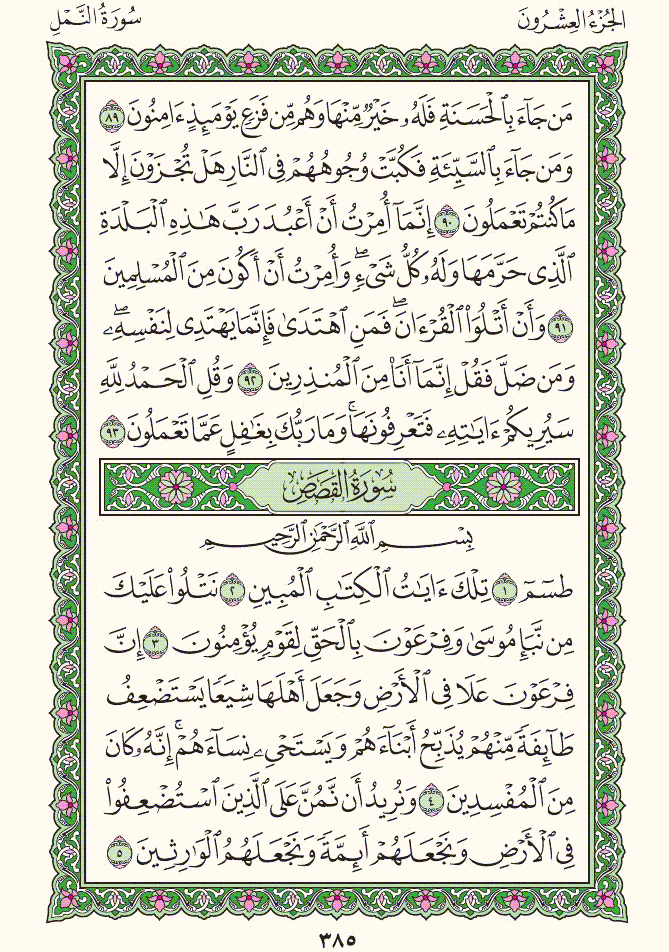 سُورَةُ النَّمْلِ
الجُزْءُ العِشْرُونَ
مَن جَآءَ بِٱلْحَسَنَةِ فَلَهُۥ خَيْرٌ مِّنْهَا وَهُم مِّن فَزَعٍ يَوْمَئِذٍ ءَامِنُونَ ٨٩
وَمَن جَآءَ بِٱلسَّيِّئَةِ فَكُبَّتْ وُجُوهُهُمْ فِى ٱلنَّارِ هَلْ تُجْزَوْنَ إِلَّا
مَا كُنتُمْ تَعْمَلُونَ ٩٠ إِنَّمَآ أُمِرْتُ أَنْ أَعْبُدَ رَبَّ هَـٰذِهِ ٱلْبَلْدَةِ
ٱلَّذِى حَرَّمَهَا وَلَهُۥ كُلُّ شَىْءٍۖ وَأُمِرْتُ أَنْ أَكُونَ مِنَ ٱلْمُسْلِمِينَ
٩١ وَأَنْ أَتْلُوَا۟ ٱلْقُرْءَانَۖ فَمَنِ ٱهْتَدَىٰ فَإِنَّمَا يَهْتَدِى لِنَفْسِهِۦۖ
وَمَن ضَلَّ فَقُلْ إِنَّمَآ أَنَا۠ مِنَ ٱلْمُنذِرِينَ ٩٢ وَقُلِ ٱلْحَمْدُ لِلَّهِ
سَيُرِيكُمْ ءَايَـٰتِهِۦ فَتَعْرِفُونَهَاۚ وَمَا رَبُّكَ بِغَـٰفِلٍ عَمَّا تَعْمَلُونَ ٩٣
سُورَةُ القَصَصِ
بِسْمِ ٱللَّهِ ٱلرَّحْمَـٰنِ ٱلرَّحِيمِ
طسٓمٓ ١ تِلْكَ ءَايَـٰتُ ٱلْكِتَـٰبِ ٱلْمُبِينِ ٢ نَتْلُوا۟ عَلَيْكَ
مِن نَّبَإِ مُوسَىٰ وَفِرْعَوْنَ بِٱلْحَقِّ لِقَوْمٍ يُؤْمِنُونَ ٣ إِنَّ
فِرْعَوْنَ عَلَا فِى ٱلْأَرْضِ وَجَعَلَ أَهْلَهَا شِيَعًا يَسْتَضْعِفُ
طَآئِفَةً مِّنْهُمْ يُذَبِّحُ أَبْنَآءَهُمْ وَيَسْتَحْىِۦ نِسَآءَهُمْۚ إِنَّهُۥ كَانَ
مِنَ ٱلْمُفْسِدِينَ ٤ وَنُرِيدُ أَن نَّمُنَّ عَلَى ٱلَّذِينَ ٱسْتُضْعِفُوا۟
فِى ٱلْأَرْضِ وَنَجْعَلَهُمْ أَئِمَّةً وَنَجْعَلَهُمُ ٱلْوَٰرِثِينَ ٥
٣٨٥